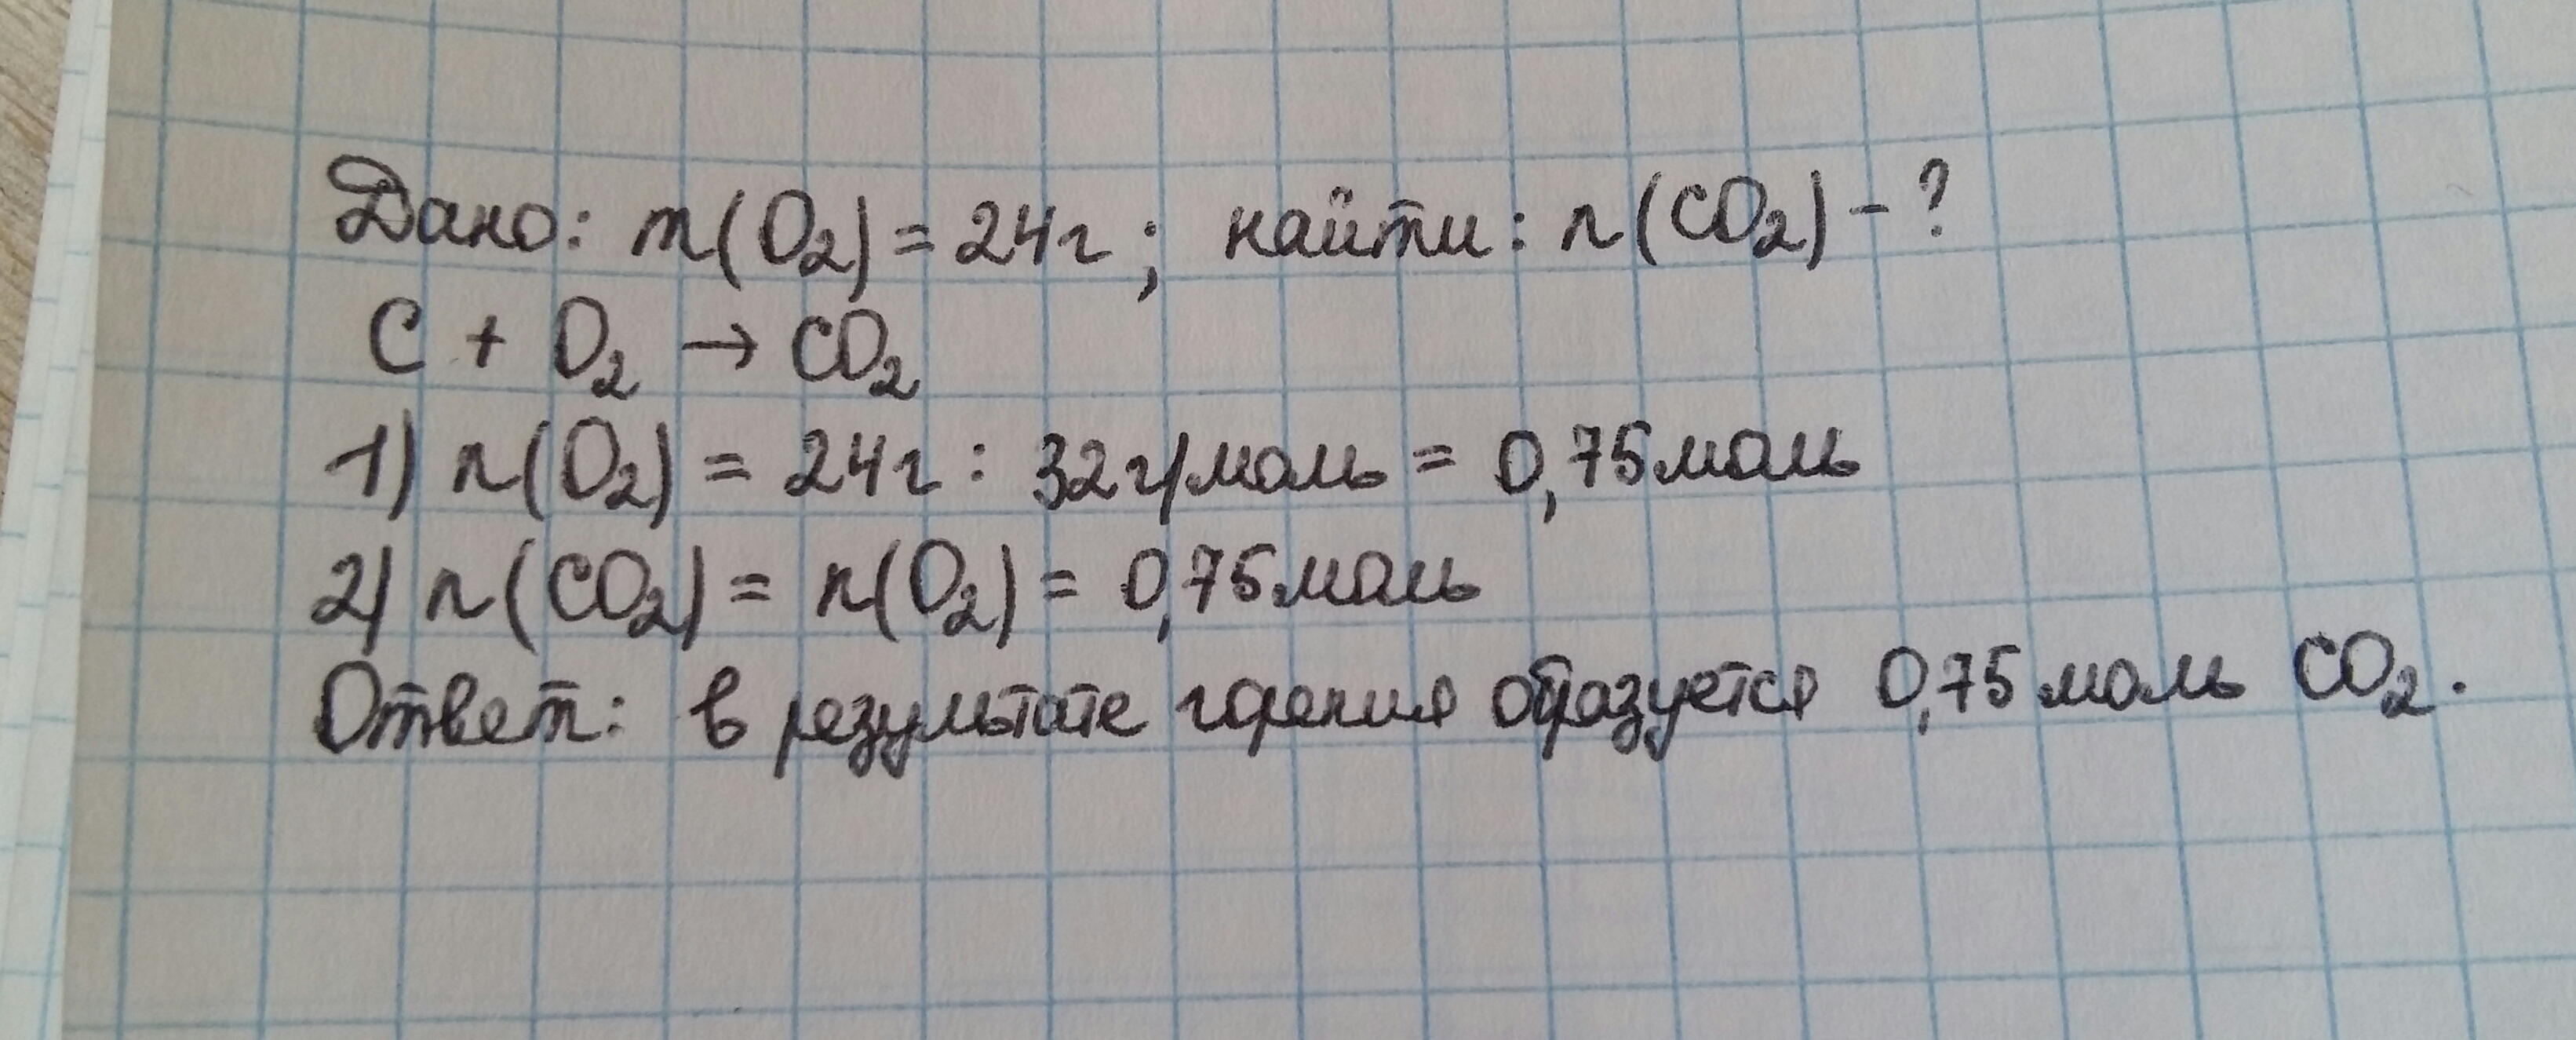 Дано: m(O₂) = 24г; найти: n(CO₂) - ?
C + O₂ → CO₂
1) n(O₂) = 24г : 32г/моль = 0,75моль
2) n(CO₂) = n(O₂) = 0,75моль
Ответ: в результате горения образуется 0,75 моль CO₂.